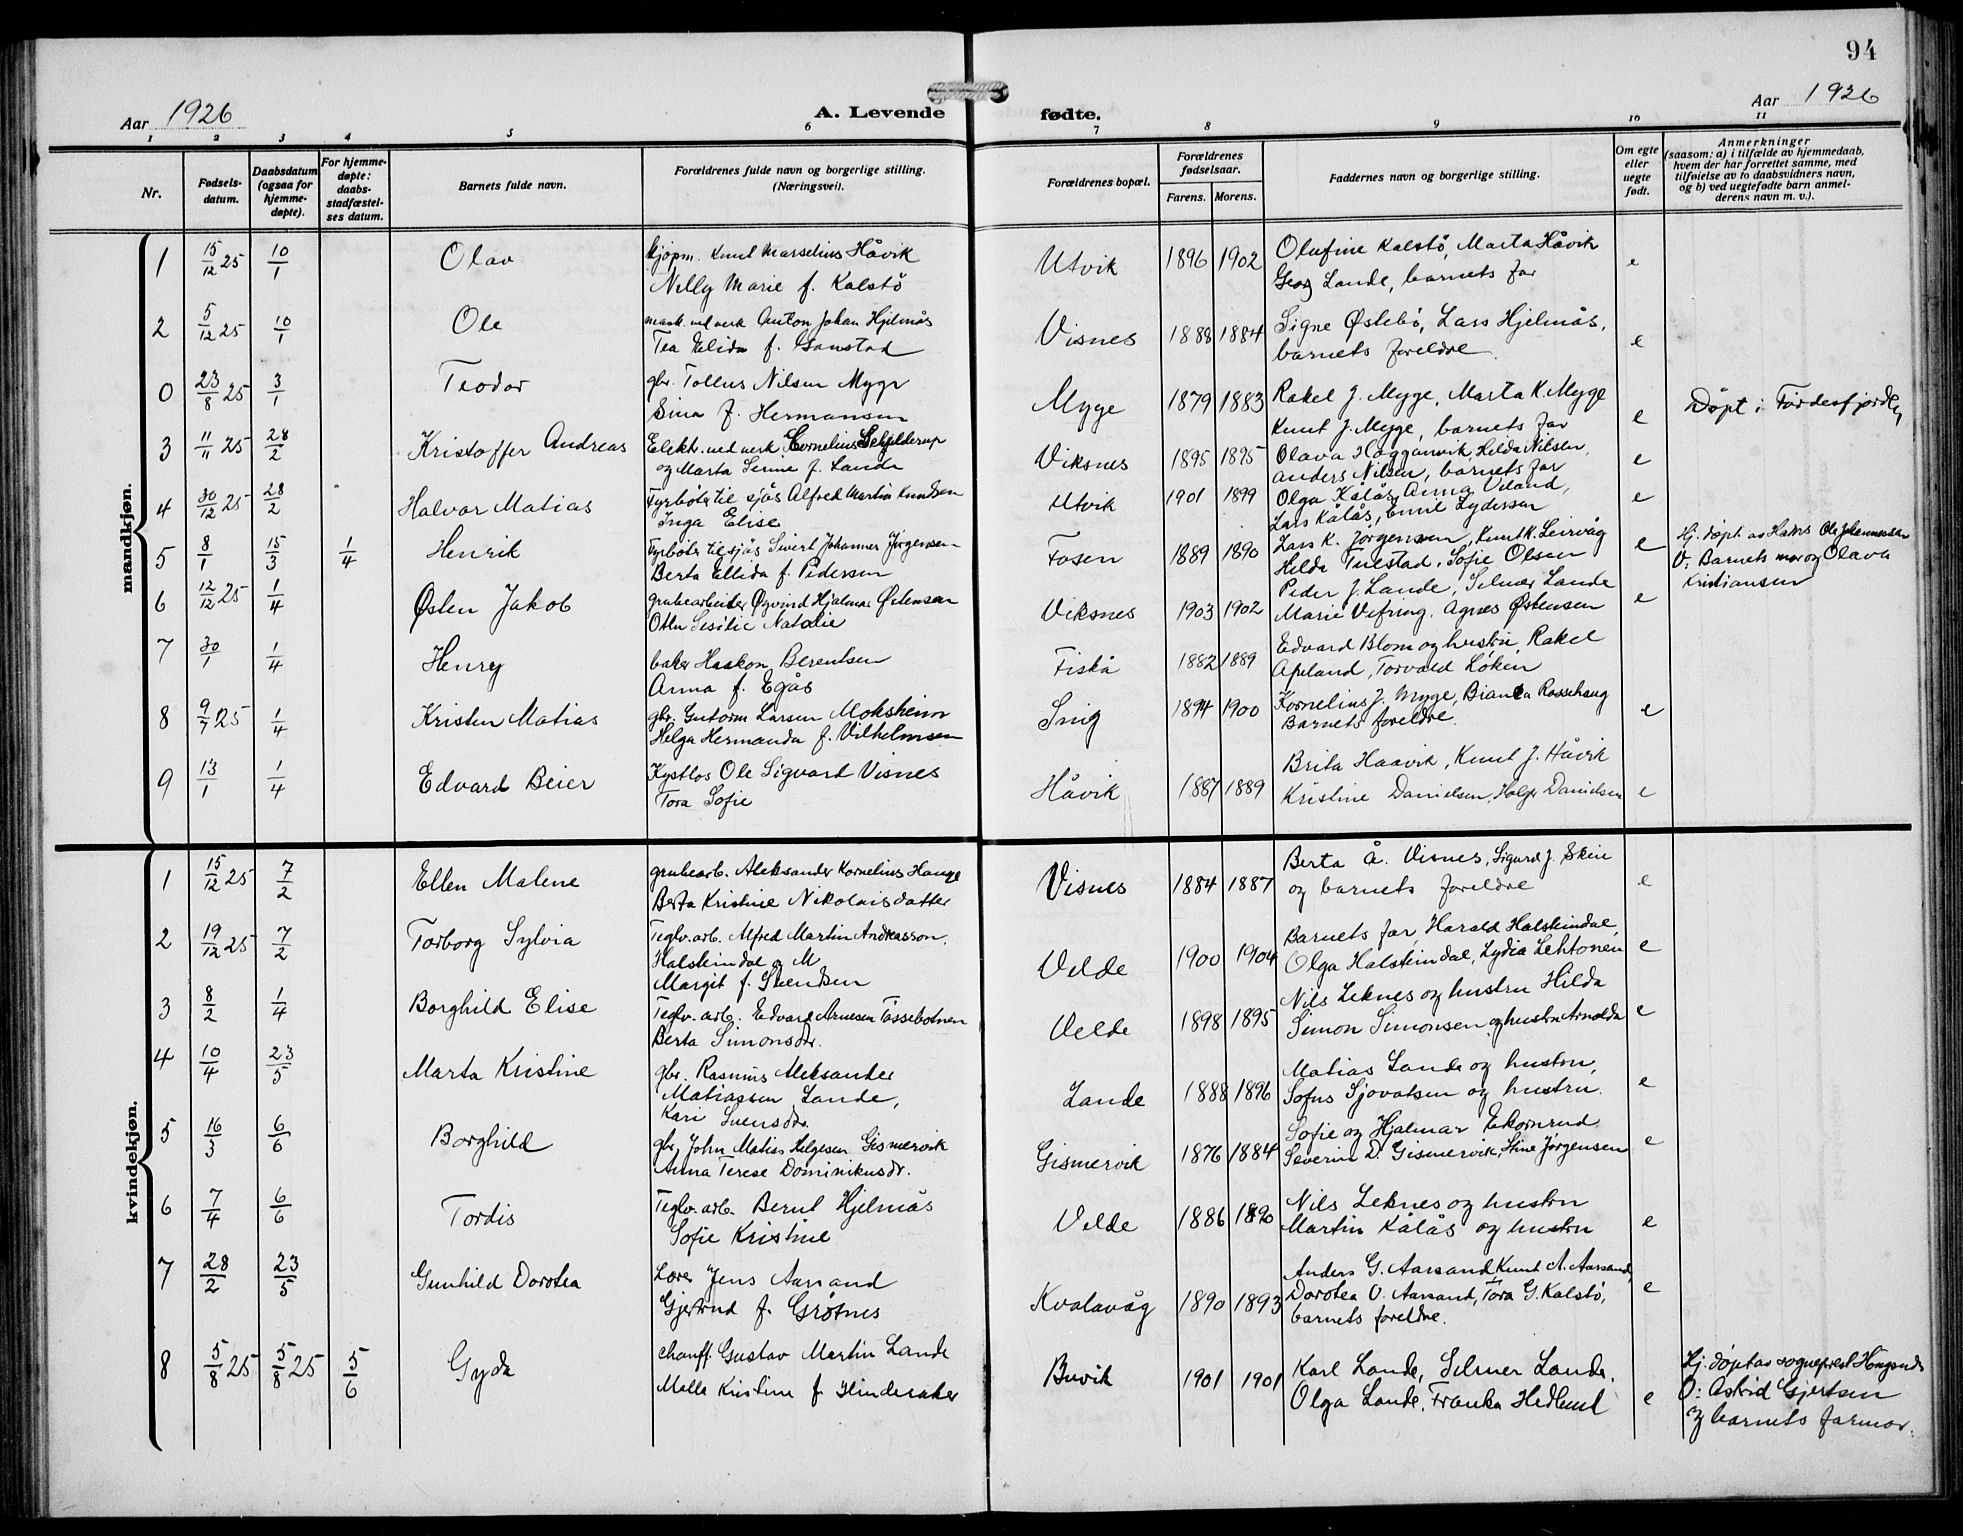 94
Aar 1926
A. Levende
fødte.
Aar 1926
1 2 3 4 5 6 7 8 9 10 11
Nr.
Fødsels-
datum.
Daabsdatum
(ogsaa for
hjemme-
døpte).
For hjemme-
døpte:
daabs-
stadfæstel-
ses datum.
Barnets fulde navn.
Forældrenes fulde navn og borgerlige stilling.
(Næringsvei).
Forældrenes bopæl.
Forældrenes
fødselsaar.
Farens. Morens.
Faddernes navn og borgerlige stilling.
Om egte
eller
uegte
født.
Anmerkninger
(saasom: a) i tilfælde av hjemmedaab,
hvem der har forrettet samme, med
tilføielse av to daabsvidners navn,
og b) ved uegtefødte barn anmel-
derens navn m. v.).
mandkjøn.
1 15/12 25 10/1 Olav kjøpm. Knut Marselius Håvik
Nelly Marie f. Kalstö
Utvik 1896 1902 Olufine Kalstö, Marta Håvik
Georg Lande, barnets far e
2 5/12 25 10/1 Ole mask. ved verk Anton Johan Hjelmås
Tea Elida f. Ganstad
Visnes 1888 1884 Signe Østebö, Lars Hjelmås,
barnets foreldre. e
0 23/8 25 3/1 Teodor gbr. Tollus Nilsen Myge
Sina f. Hermansen
Mygge 1879 1883 Rakel J. Myge, Marta K. Myge
Knut J. Myge, barnets far e Döpt i Fördesfjorden
3 11/11 25 28/2 Kristoffer Andreas Elektr. ved verk Cornelius Schjelderup
og Marta Serine f. Lande
Viksnes 1895 1895 Olava Hägganvik, Helda Nilsen,
Anders Nilsen, barnets far e
4 30/12 25 28/2 Halvor Matias Fyrböter til sjös Alfred Martin Knudsen
Inga Elise
Utvik 1901 1899 Olga Kålås, Anna Veland,
Lars Kålås, Emil Lydersen e
5 8/1 15/3 1/4 Henrik Fyrböter til sjös Sivert Johannes Jörgensen
Berta Ellida f. Pedersen
Fosen 1889 1890 Lars K. Jørgensen, Knut K. Leirvåg
Hilda Tuestad, Sofie Olsen e Hj. døpt av Ole Johannessen
V: Barnets mor og Olava
Kristiansen
6 12/12 25 1/4 Østen Jakob grubearbeider Øyvind Hjalmar Østensen
Otter Sesilie Natalie
Viksnes 1903 1902 Peder J. Lande, Selmer Lande
Marie Vefring. Agnes Østensen e
7 30/1 1/4 Henry baker Haakon Berentsen
Anna f. Egås
Fiskå 1882 1889 Edvard Blom og hustru, Rakel
Apeland, Torvald Löken
8 9/7 25 1/4 Kristen Matias gbr. Gutorm Larsen Moksheim
Helga Hermanda f. Vilhelmsen
Snig 1894 1900 Kornelius J. Myge, Bianca Rossehaug
Barnets foreldre. e
9 13/1 1/4 Edvard Beier Kystlos Ole Sigvart Visnes
Tora Sofie
Håvik 1887 1889 Brita Haavik, Knut J. Håvik
Kristine Danielsen, Holger Danielsen e
kvindekjøn.
1 15/12 25 7/2 Ellen Malene grubearb. Aleksander Kornelius Hauge
Berta Kristine Nikolaisdatter
Visnes 1884 1887 Berta Å. Visnes, Sigurd J. Skeie
og barnets foreldre e
2 19/12 25 7/2 Torborg Sylvia Teglv. arb. Alfred Martin Andreasson.
Halsteindal o M
Margit f. Svendsen
Velde 1900 1904 Barnets far, Harald Halsteindal,
Olga Halsteindal, Lydia Lehtonen e
3 8/2 1/4 Borghild Elise Teglv. arb. Edvard Arnesen Tössebotnen
Berta Simonsdr.
Velde 1898 1895 Nils Leknes og hustru Hilda
Simon Simonsen og hustru Arnolda e
4 10/4 23/5 Marta Kristine gbr. Rasmus Aleksander
Matiassen Lande,
Kari Svensdr.
Lande 1888 1896 Matias Lande og hustru,
Sofus Sjovatsen og hustru. e
5 16/3 6/6 Borghild gbr. John Matias Helgesen Gismervik
Anna Terese Dominikusdr.
Gismervik 1876 1884 Sofie og Hjalmar Ekornrud
Severin D. Gismervik, Stine Jørgensen e
6 7/4 6/6 Tordis Teglv. arb. Bernt Hjelmås
Sofie Kristine
Velde 1886 1890 Nils Leknes og hustru
Martin Kålås og hustru e
7 28/2 23/5 Gunhild Dorotea Lærer Jens Aarsand
Gjertrud f. Grötnes
Kvalavåg 1890 1893 Anders G. Aarsand Knut A. Aarsand,
Dorotea O. Aarsand, Tora G. Kalstö,
barnets foreldre. e
8 5/8 25 5/8 25 5/6 Gyda chauff. Gustav Martin Lande
Malla Kristine f. Hinderaker
Buvik 1901 1901 Karl Lande, Selmer Lande.
Olga Lande, Franka Hedlund e Hj. döpt av sogneprest Hougsnes
V: Astrid Gjertsen
og barnets farmor.